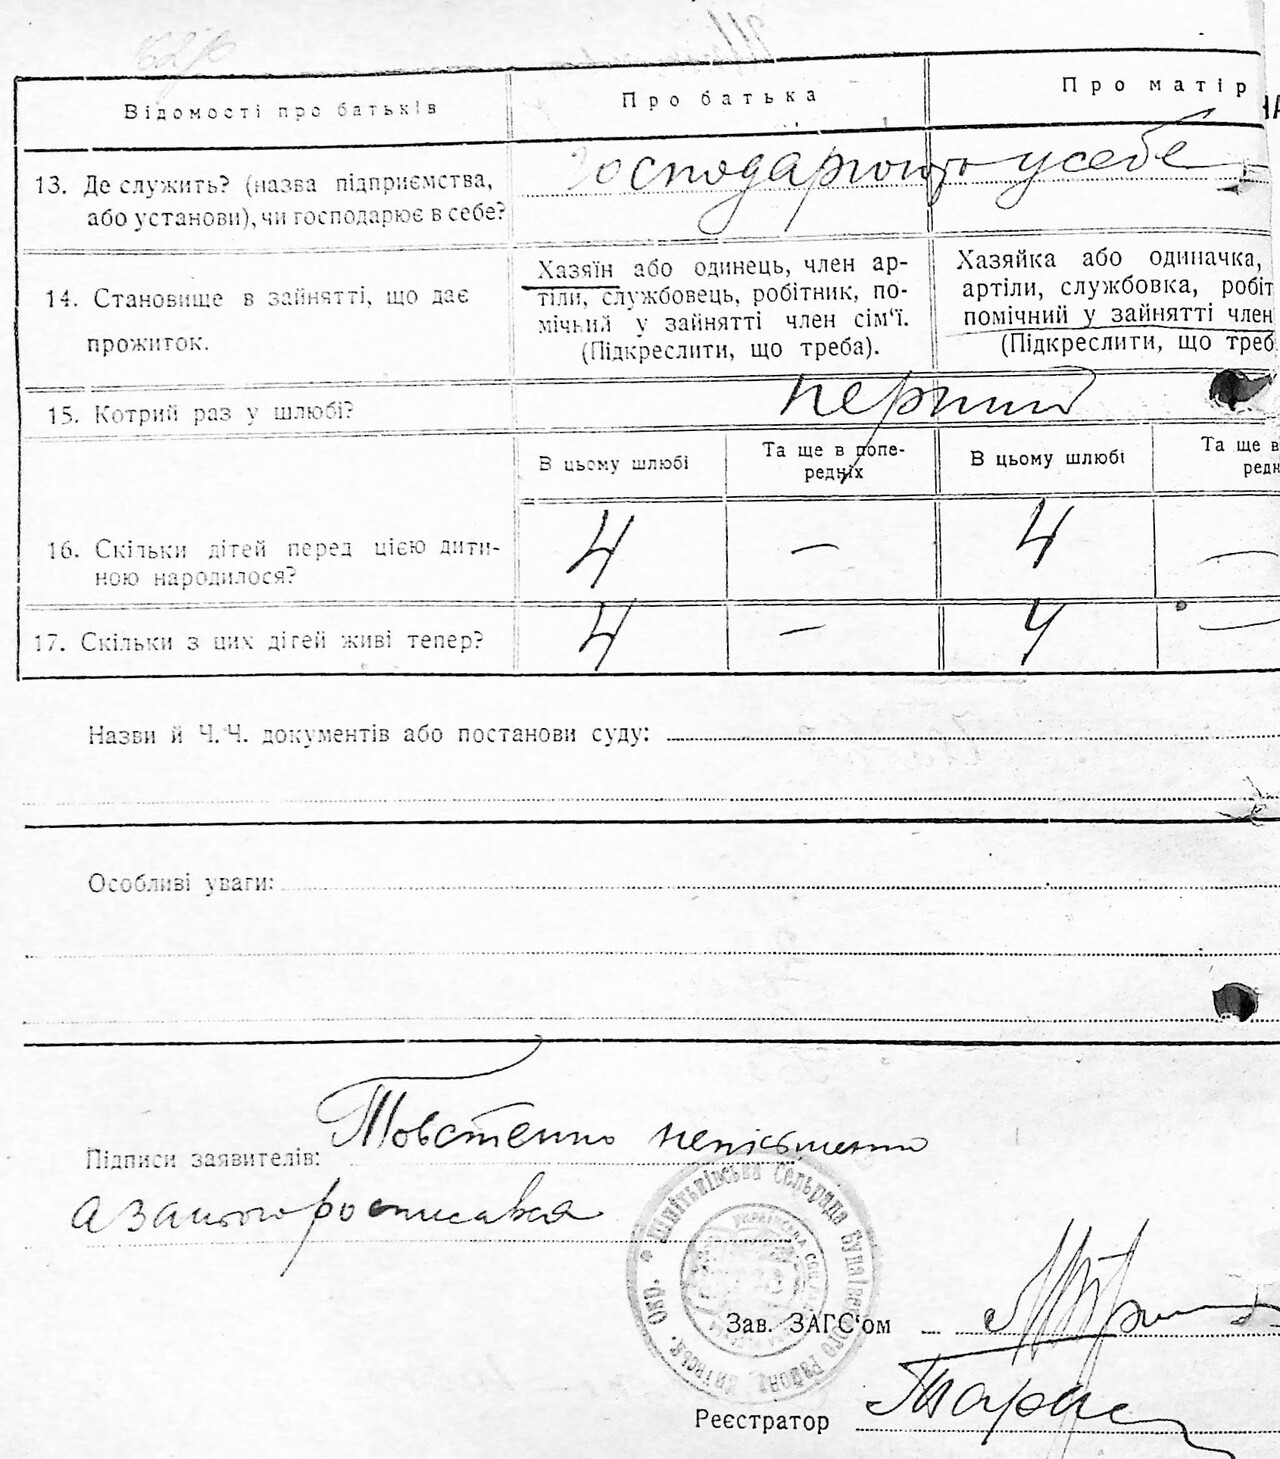 Відомості про батьків
Про батька
Про матір
НА
13. Де служить? (назва підприємства,
або установи), чи господарює в себе?
Господарюють у себе
14. Становище в зайнятті, що дає
прожиток.
Хазяїн або одинець, член ар-
тіли, службовець, робітник, по-
мічний у зайнятті член сім'ї.
(Підкреслити, що треба).
Хазяйка або одиначка,
артіли, службовка, робіт
помічний у зайнятті член
(Підкреслити, що треб
15. Котрий раз у шлюбі?
перший
В цьому шлюбі
Та ще в попе-
редніх
В цьому шлюбі
Та ще в
редн
16. Скільки дітей перед цією дити-
ною народилося?
4 — 4 —
17. Скільки з цих дітей живі тепер?
4 — 4 —
Назви й Ч.Ч. документів або постанови суду:
Особливі уваги:
Підписи заявителів: Товстенко
а за нього росписався
Сельрада
Зав. ЗАГС'ом
Реєстратор